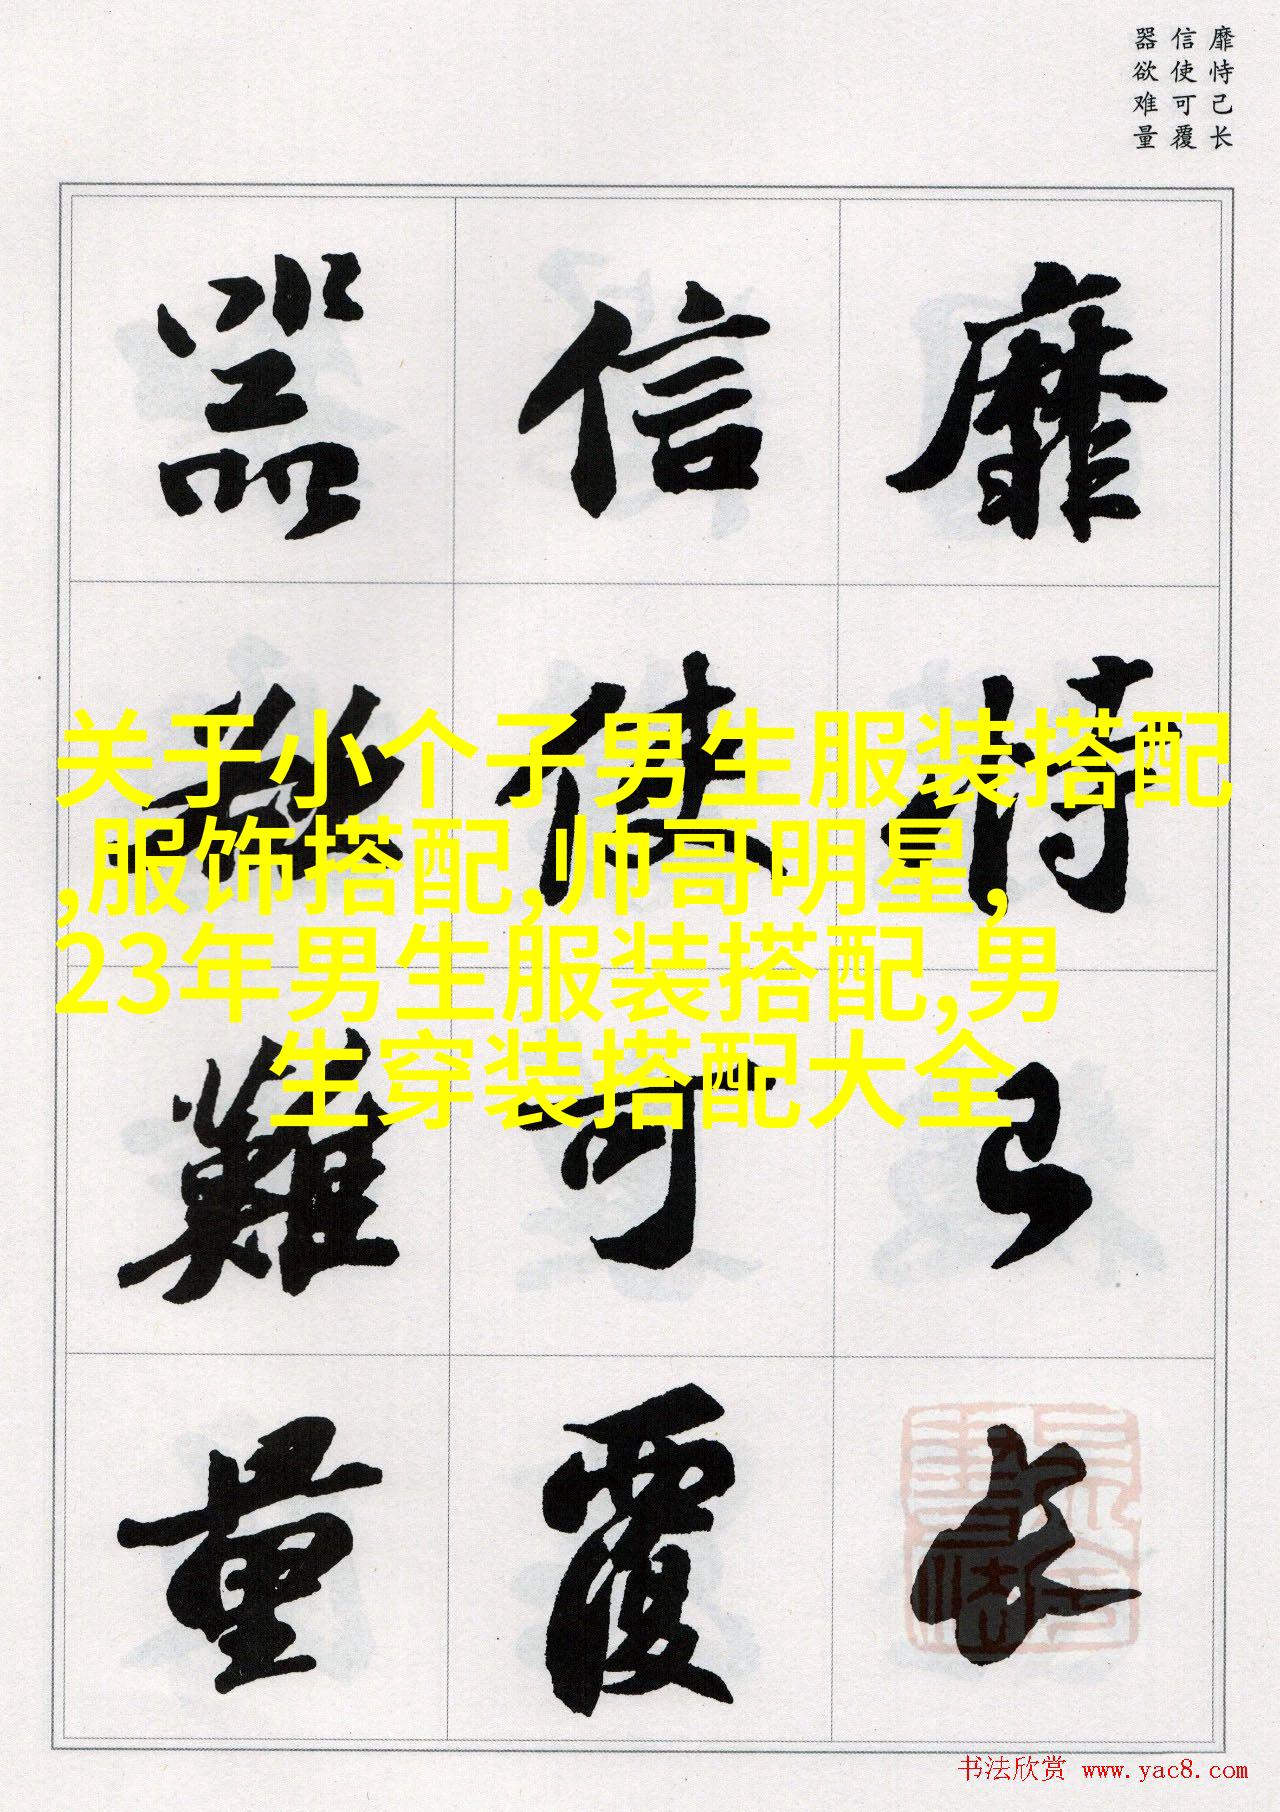 靡恃己长
信使可覆
器欲难量
靡恃己長
信使可覆
器欲難量
关于小个子男生服装搭配
,服饰搭配,帅哥明星,
23年男生服装搭配,男
生穿装搭配大全
书法欣赏 www.yac8.com